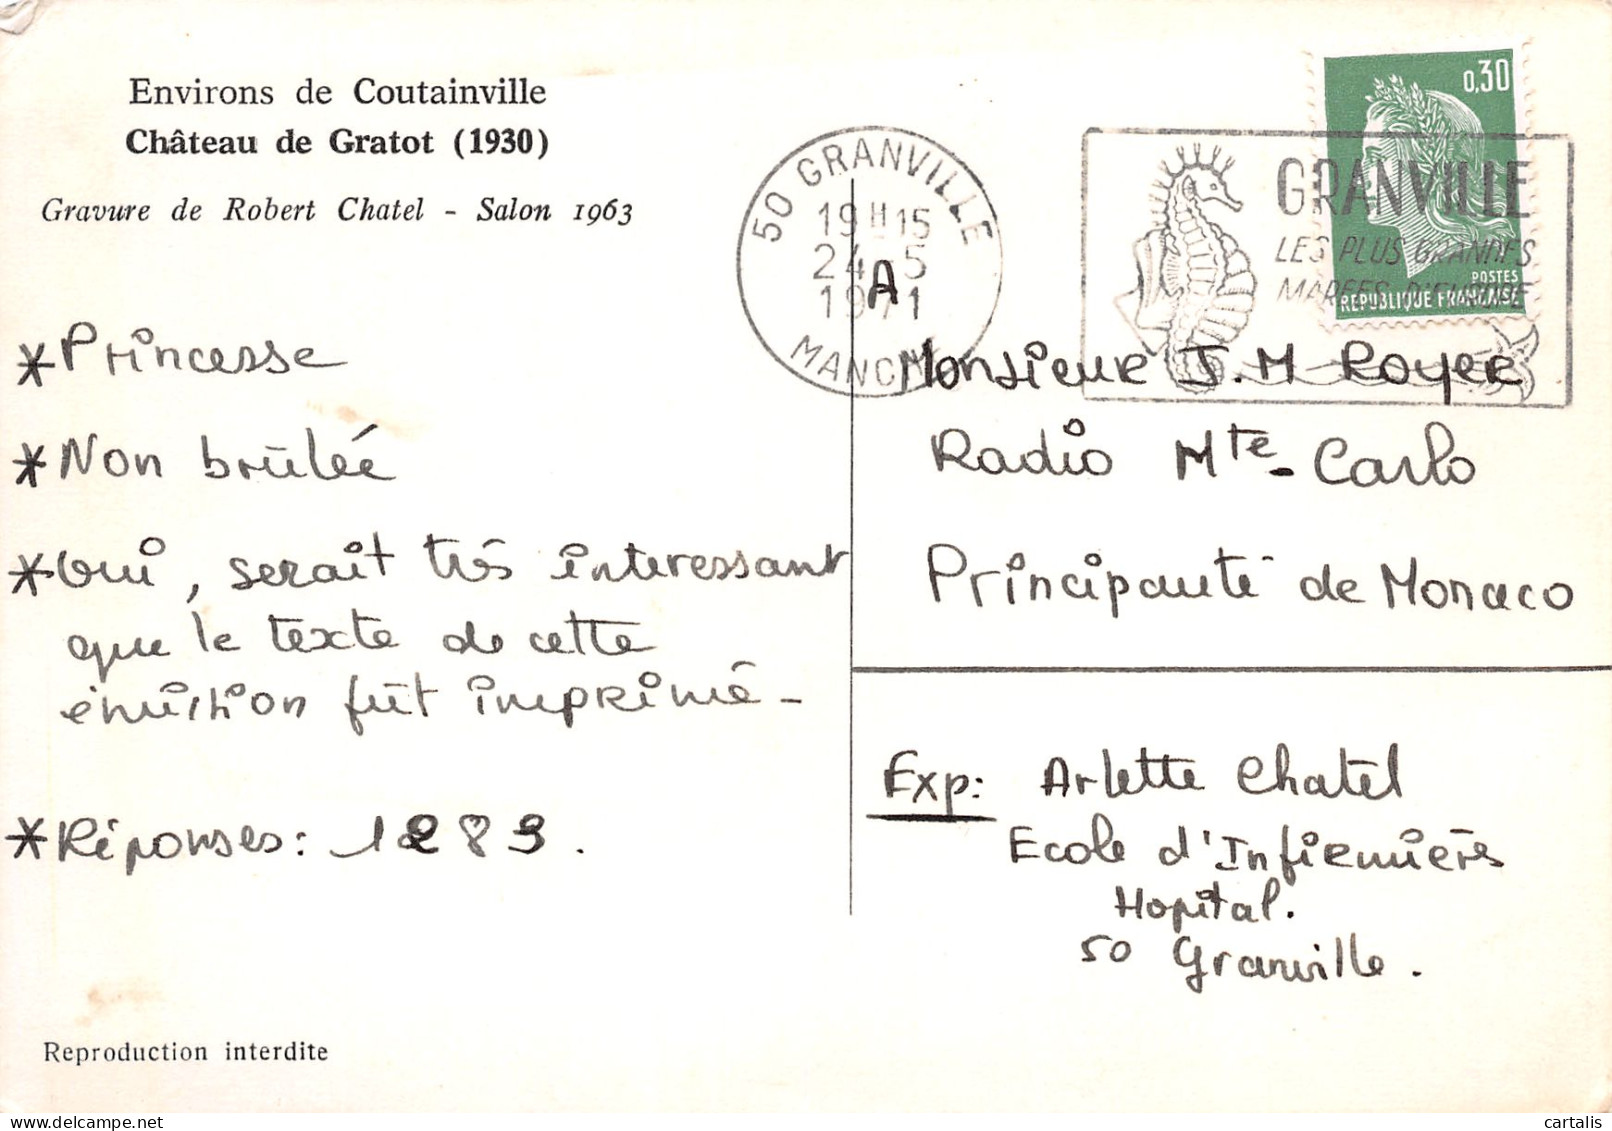 Environs de Coutainville
Château de Gratot (1930)
Gravure de Robert Chatel - Salon 1963
50 GRANVILLE
19H15
24-5
1971
MANCHE
A
GRANVILLE
LES PLUS GRANDES
MAREES D'EUROPE
0,30
POSTES
REPUBLIQUE FRANCAISE
* Princesse
* Non brûlée
* Oui, serait très interessant
que le texte de cette
émission fût imprimé -
* Réponses: 1283.
Monsieur J.M Royer
Radio Mte-Carlo
Principauté de Monaco
Exp: Arlette Chatel
Ecole d'Infirmières
Hopital.
50 Granville.
Reproduction interdite
cartalis